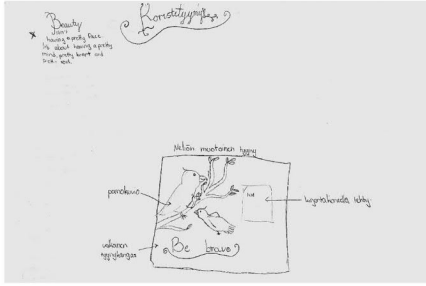 Beauty
isn't
having a pretty face
its about having a pretty
mind, pretty heart and
soul.
Neliön muotoinen tyyny
painokuva
kirjontakoneella tehty
valkoinen
tyynykangas
Be brave